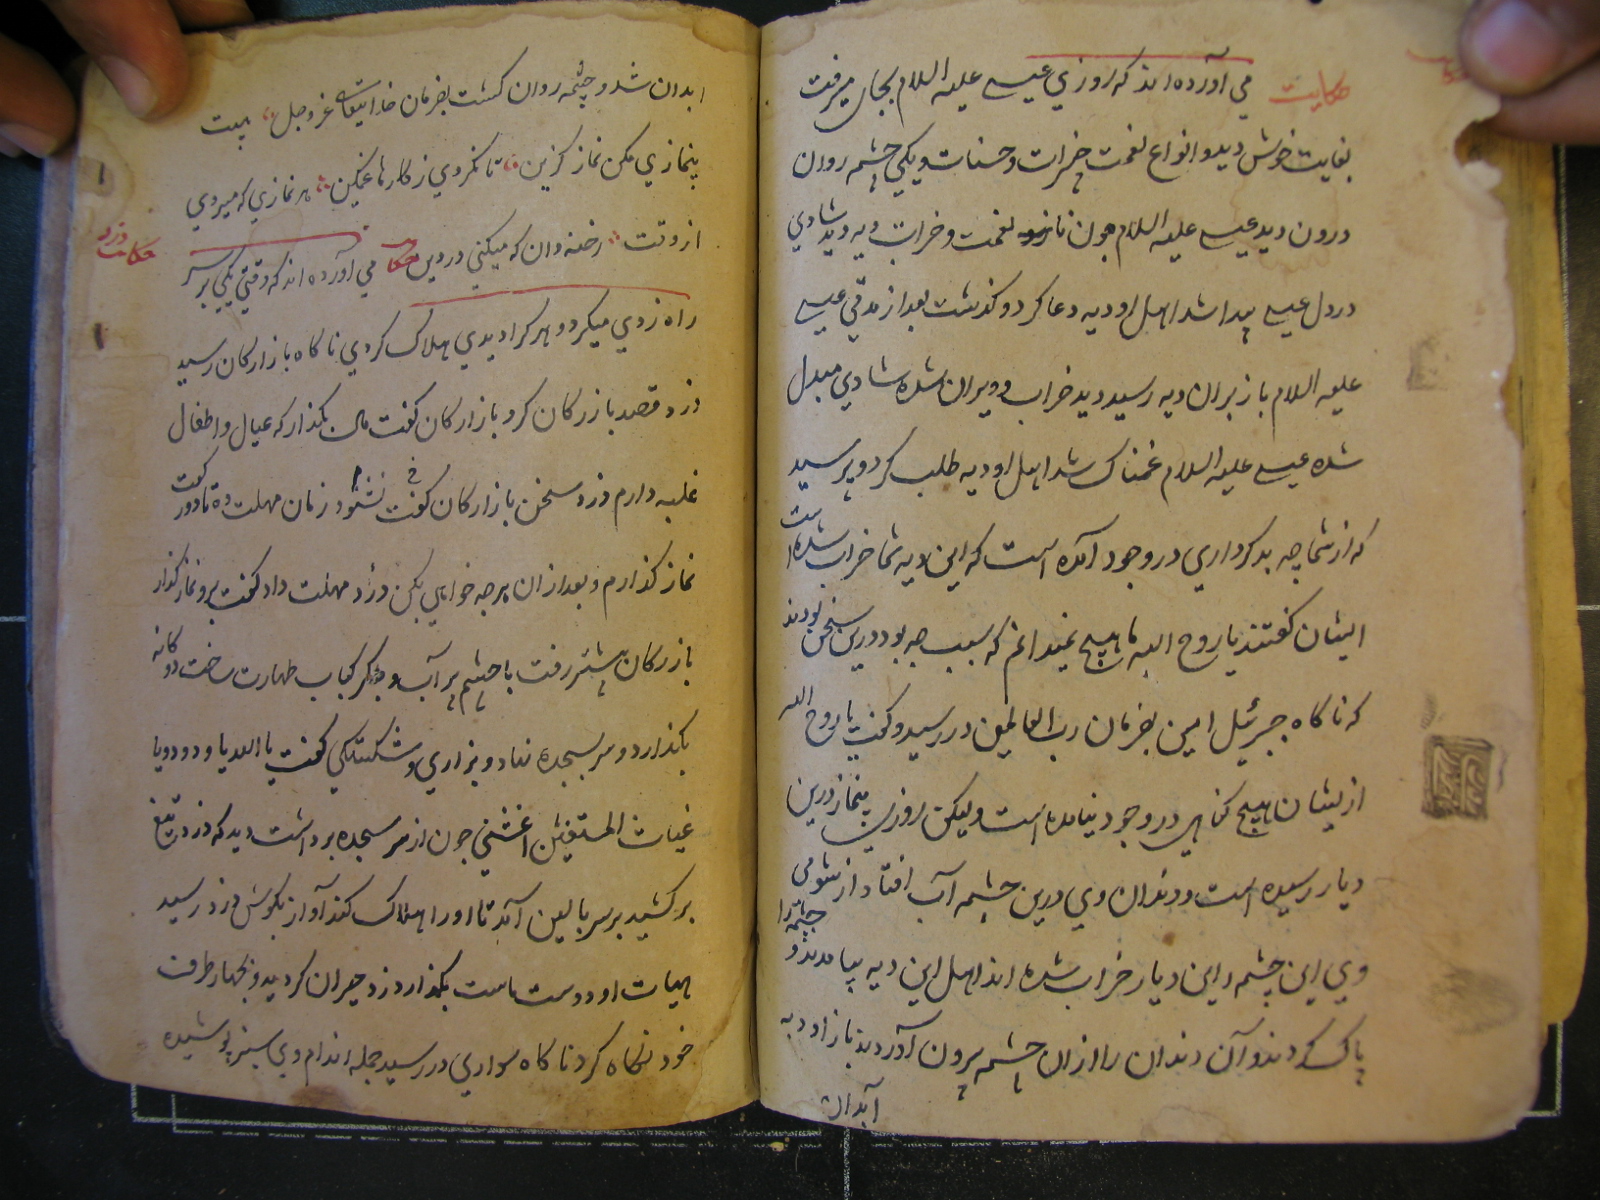 حکایت می آورده اند که روزی عیسے علیه السلام بجای میرفت
بغایت خوش دید و انواع نعمت خیرات و حسنات و یکی چشمه روان
درون دید عیسے علیه السلام چون نعمت و خیرات دیه دید شادی
در دل عیسے پیدا شد اهل او دیه دعا کرد و گذشت بعد از مدتی عیسے
علیه السلام باز بران دیه رسید دید خراب و ویران شده شادی مبدل
شده عیسے علیه السلام غمناک شد اهل او دیه طلب کرد و پرسید
که از شما چه بدکرداری در وجود آمده است که این دیه شما خراب شده است
ایشان گفتند یا روح الله ما هیچ نمیدانم که سبب چه بود درین سخن بودند
که ناگاه جبرئیل امین بفرمان رب العالمین در رسید و گفت یا روح الله
ازیشان هیچ گناهی در وجود نیامده است ولیکن روزی بینماز درین
دیار رسیده است و دندان وی درین چشمه آب افتاد از شومی
وی این چشمه و این دیار خراب شده اند اهل این دیه بیامدند و چشمه را
پاک کردند و آن دندان را ازان چشمه بیرون آوردند باز او دیه
آبدان
ابدان شد و چشمه روان گشت بفرمان خدایتعالی عز و جل بیت
بینمازی مکن نماز گزین تا نگردی ز کارها غمگین هر نمازی که میرودی
از وقت رخنه دان که میکنی در دین حکایت می آورده اند که وقتی یکی بر سر
حکایت دزد
راه زدی میکرد و هر کرا دیدی هلاک کردی ناگاه بازارگان رسید
دزد قصد بازرگان کرد بازارگان گفت مال بگذار که عیال و اطفال
غلبه دارم دزد سخن بازارگان نشنود گفت زمان مهلت ده تا دو رکعت
نماز گذارم و بعد ازان هر چه خواهی بکن دزد مهلت داد گفت برو نماز گذار
بازرگان پیشتر رفت با چشم پر آب و جگر کباب طهارت ساخت دوگانه
بگذارد و سر بسجده نهاد و بزاری و شکستگی گفت یا الله یا ودود و یا
غیاث المستغیثین اغثنی چون از سر سجده برداشت دید که دزد تیغ
برکشید بر سر بالین آمد تا او را هلاک کند آواز بگوش دزد رسید
هیهات او دوست ماست بگذار دزد حیران گردید و بچهار طرف
خود نگاه کرد ناگاه سواری در رسید جمله اندام وی سبز پوشیده